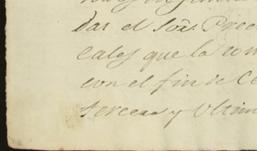 dar el Sor. Pree
cales que la com
con el fin de Ce
tercera y Ultim